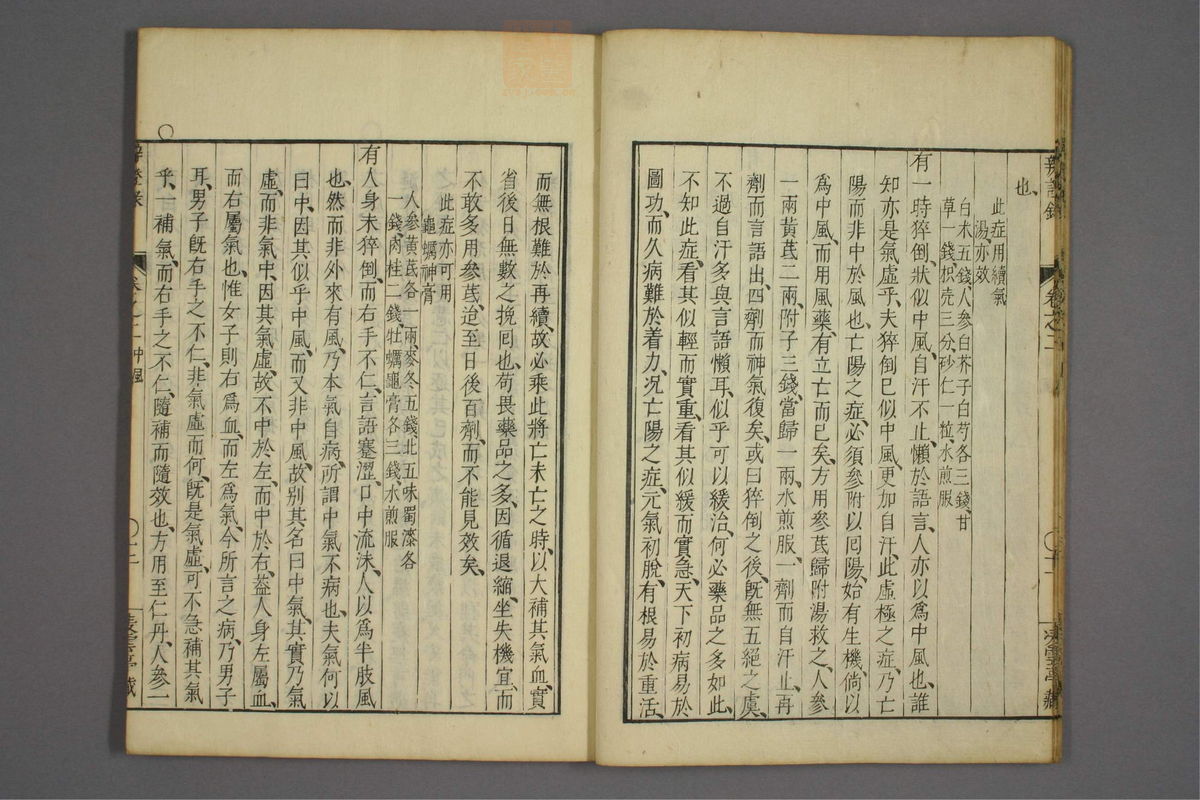 辨證錄
卷之二
也、
此症用續氣
湯、亦效、
白朮五錢、人參、白芥子、白芍各三錢、甘
草一錢、枳壳三分、砂仁一粒、水煎服
有一時猝倒、狀似中風、自汗不止、懶於語言、人亦以爲中風也、誰
知亦是氣虛乎、夫猝倒已似中風、更加自汗、此虛極之症、乃亡
陽而非中於風也、亡陽之症、必須參附以囘陽、始有生機、倘以
爲中風、而用風藥、有立亡而已矣、方用參芪歸附湯救之、人參
一兩、黃芪二兩、附子三錢、當歸一兩、水煎服、一劑而自汗止、再
劑而言語出、四劑而神氣復矣、或曰猝倒之後、旣無五絕之虞、
不過自汗多與言語懶耳、似乎可以緩治、何必藥品之多如此、
不知此症、看其似輕而實重、看其似緩而實急、天下初病易於
圖功、而久病難於着力、况亡陽之症、元氣初脫、有根易於重活、
而無根難於再續、故必乘此將亡未亡之時、以大補其氣血、實
省後日無數之挽囘也、苟畏藥品之多、因循退縮、坐失機宜、而
不敢多用參芪、迨至日後百劑、而不能見效矣、
此症亦可用
龜蠣神膏
人參、黃芪各一兩、麥冬五錢、北五味、蜀漆各
一錢、肉桂二錢、牡蠣、龜膏各三錢、水煎服
有人身未猝倒、而右手不仁、言語蹇澀、口中流沫、人以爲半肢風
也、然而非外來有風、乃本氣自病、所謂中氣不病也、夫氣何以
曰中、因其似乎中風、而又非中風、故别其名曰中氣、其實乃氣
虛、而非氣中、因其氣虛、故不中於左、而中於右、葢人身左屬血、
而右屬氣也、惟女子則右爲血、而左爲氣、今所言之病、乃男子
耳、男子旣右手之不仁、非氣虛而何、旣是氣虛、可不急補其氣
乎、一補氣、而右手之不仁、隨補而隨效也、方用至仁丹、人參一
卷之二 中風